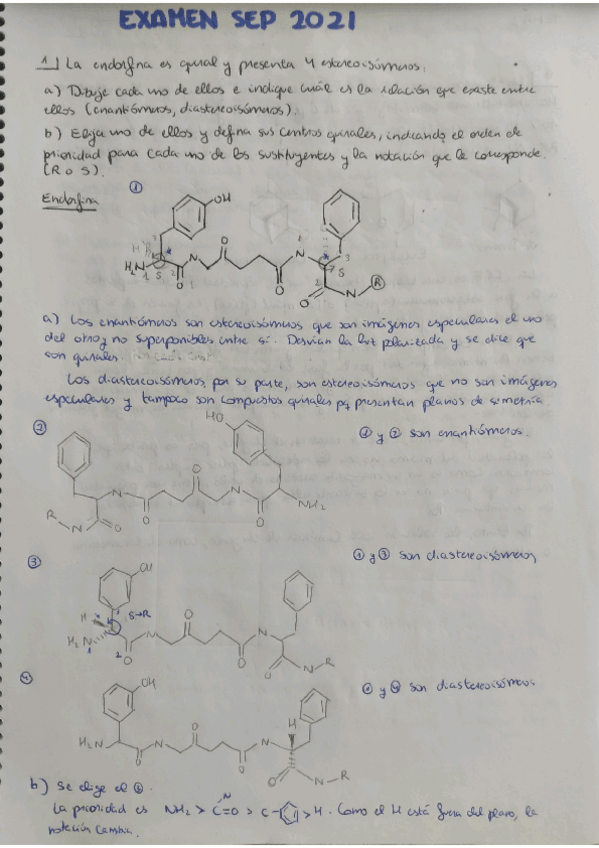 EXAMEN SEP 2021
1) La endorfina es quiral y presenta 4 estereoisómeros.
a) Dibuje cada uno de ellos e indique cuál es la relación que existe entre
ellos (enantiómeros, diastereoisómeros).
b) Elija uno de ellos y defina sus centros quirales, indicando el orden de
prioridad para cada uno de los sustituyentes y la notación que le corresponde
(R o S).
Endorfina
①
OH
H₂N
O
N
O
O
N
O
N
R
a) Los enantiómeros son estereoisómeros que son imágenes especulares el uno
del otro y no superponibles entre sí. Desvían la luz polarizada y se dice que
son quirales.
Los diastereoisómeros, por su parte, son estereoisómeros que no son imágenes
especulares y tampoco son compuestos quirales pq presentan planos de simetría.
②
HO
① y ② son enantiómeros.
R
N
O
N
O
O
N
O
NH₂
③
① y ③ son diastereoisómeros
OH
H
S→R
H₂N
O
N
O
O
N
O
N-R
④
② y ④ son diastereoisómeros
OH
H
H₂N
O
N
O
O
N
O
N-R
b) Se elige el
La prioridad es NH₂ > C=O > C- > H. Como el H está fuera del plano, la
notación cambia.